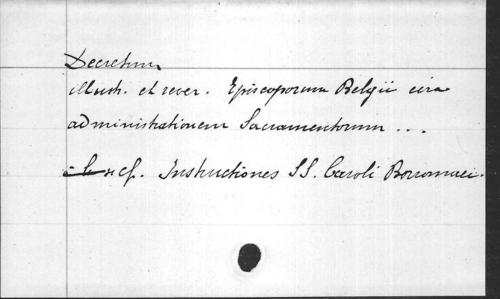 Decretum
illustr. et rever. Episcoporum Belgii circa
administrationem Sacramentorum ...
cf. Instructiones SS. Caroli Borromaei.